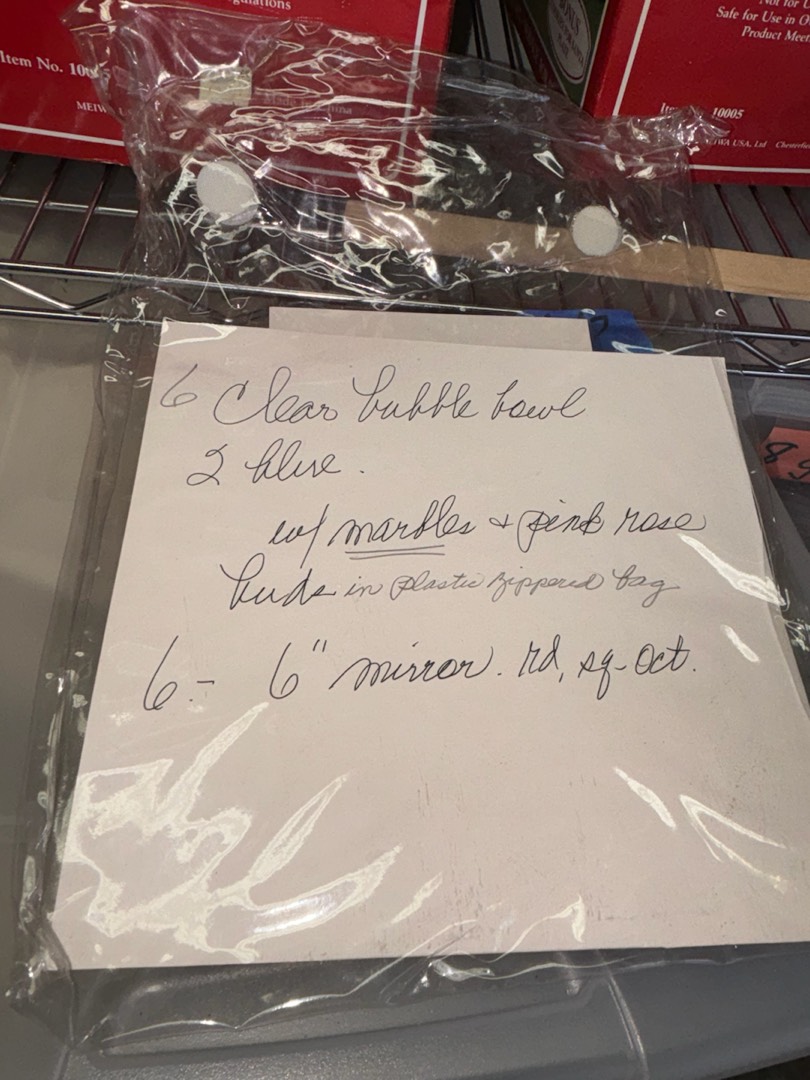 gulations
Item No. 10
MEIW
Made in China
Not for U
Safe for Use in O
Product Meet
10005
WA USA, Ltd Chesterfie
6 Clear bubble bowl
2 blue.
w/ marbles + pink rose
buds in plastic zippered bag
6 - 6" mirror. rd, sq - Oct.